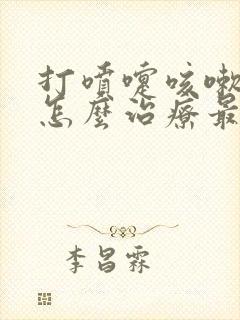 打噴嚏咳嗽
怎麼治療最
李昌霖